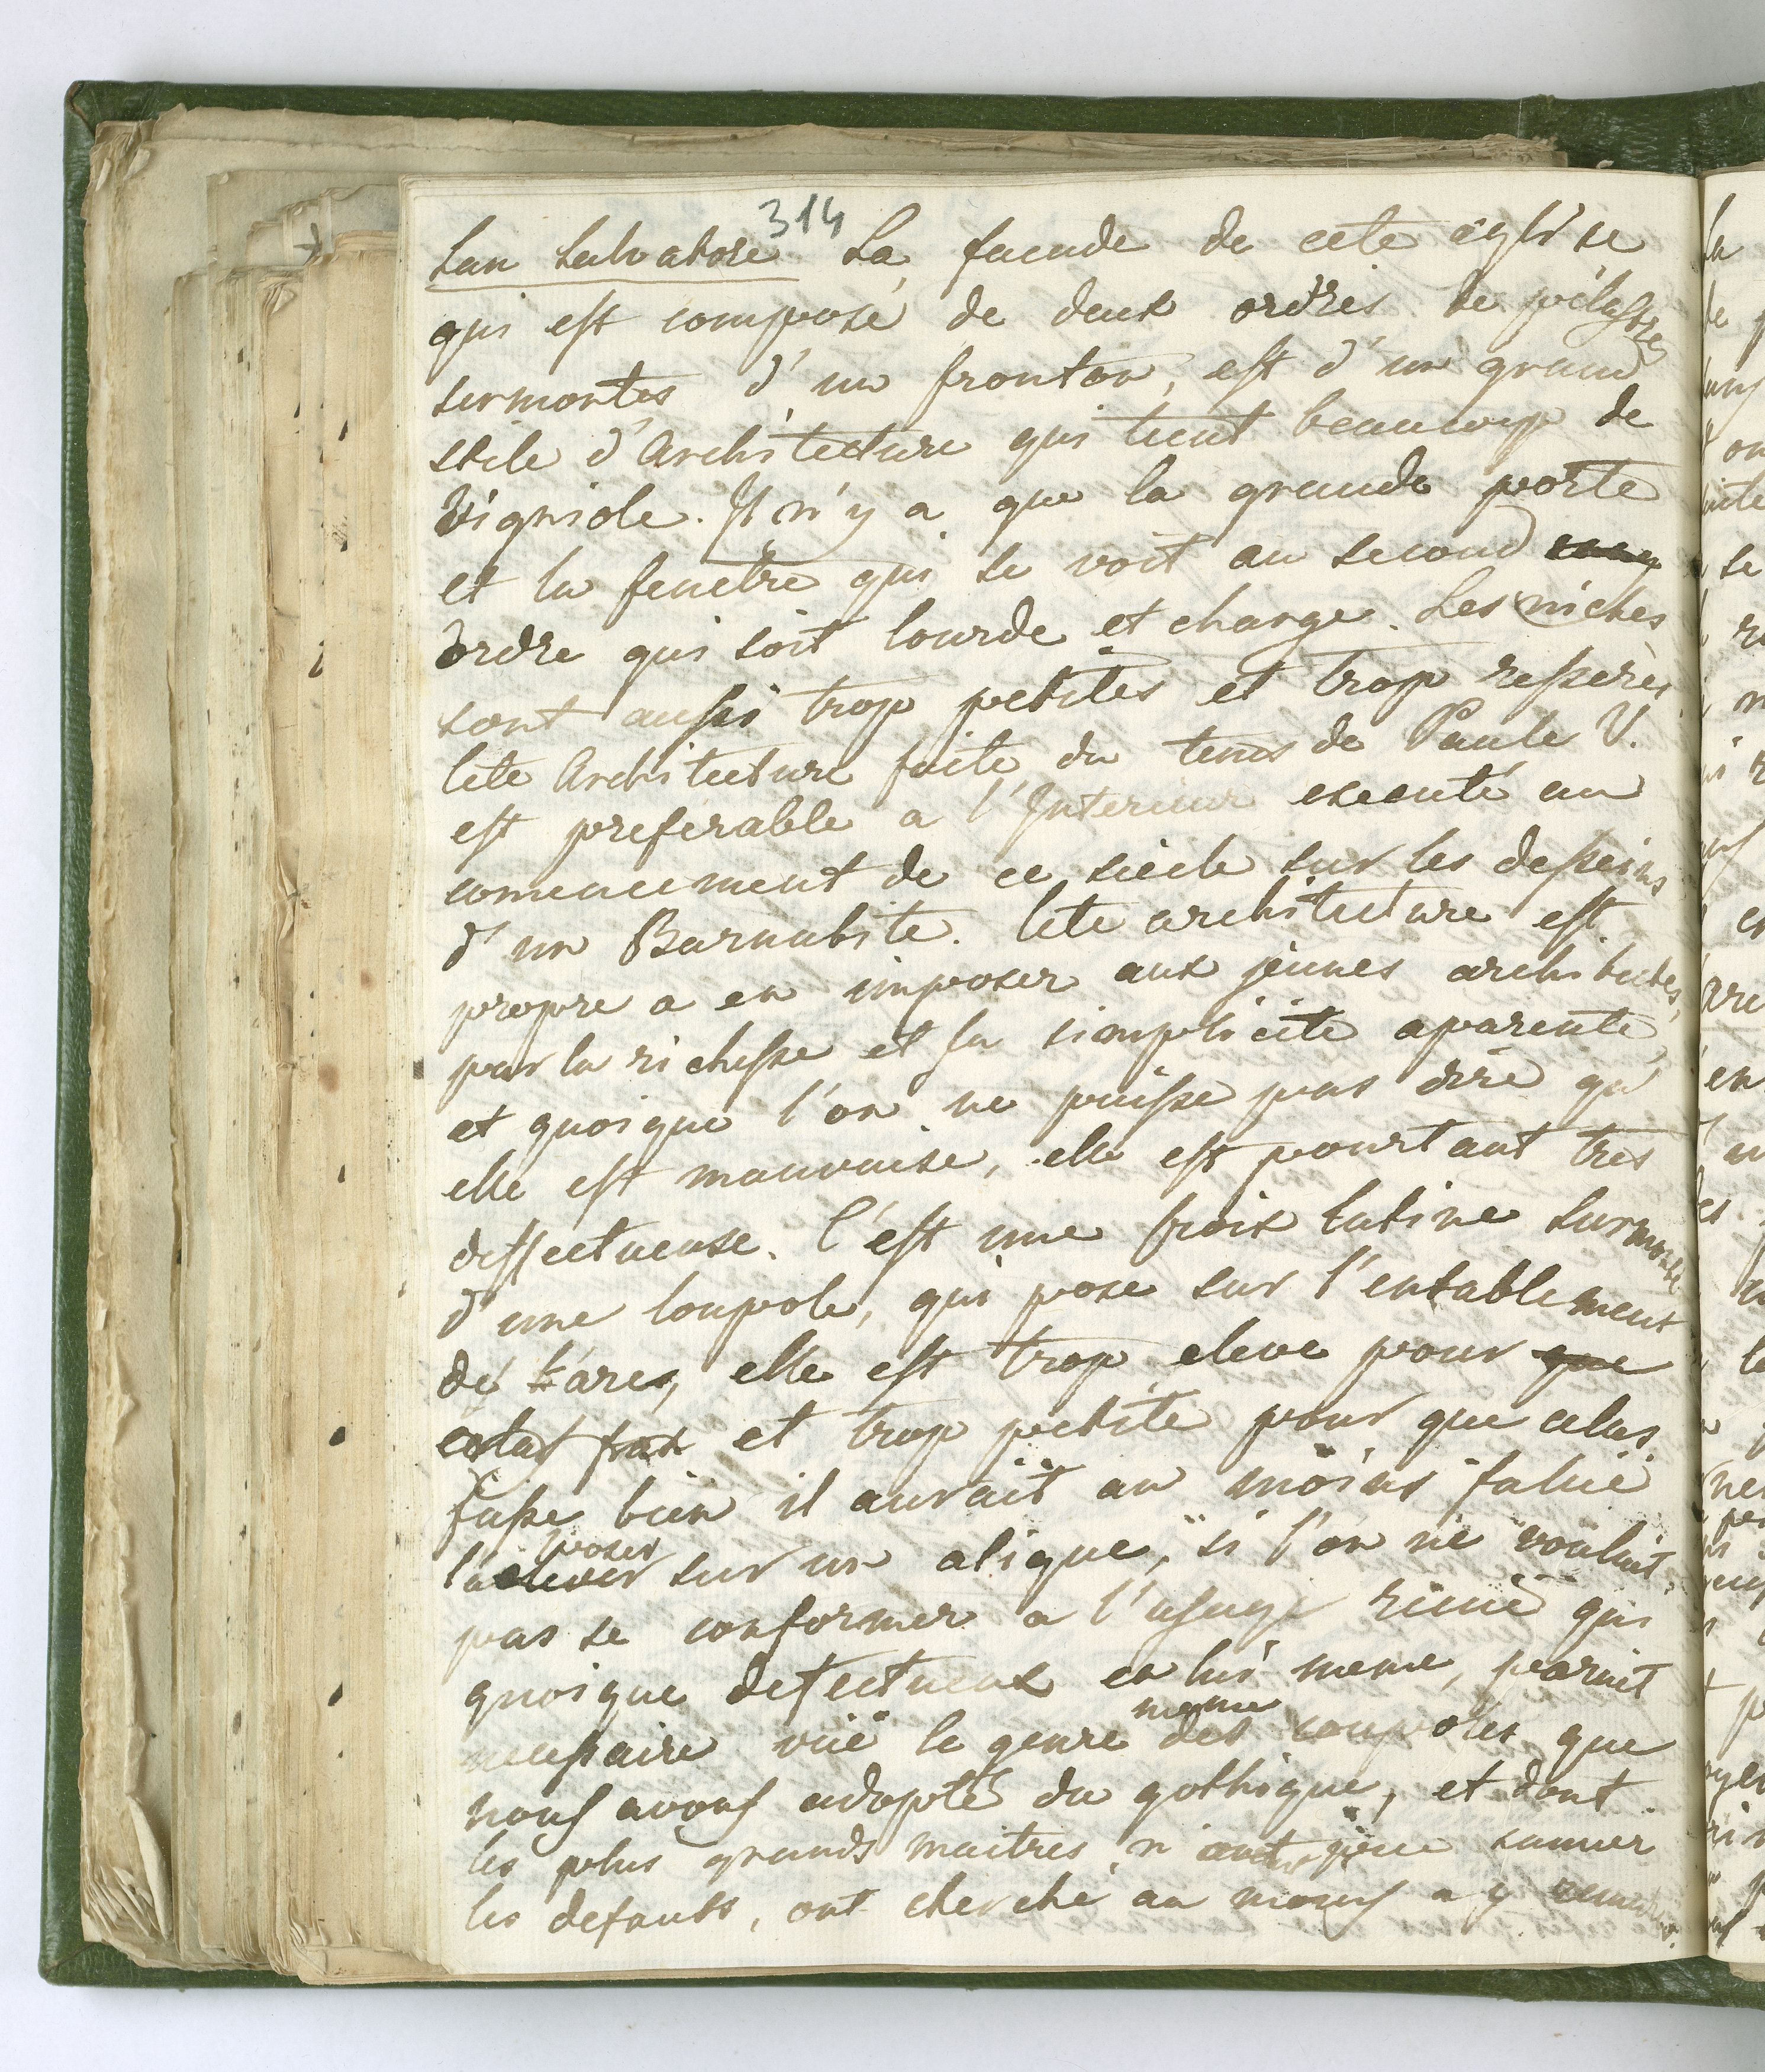 314
San Salvatore La facade de cete église
qui est composé de deux ordres de pilastres
surmontes d'un fronton, est d'un grand
stile d'Architecture qui tient beaucoup de
Vigniole. Il n'y a que la grande porte
et la fenetre qui se voit au second
ordre qui soit lourde et charge. Les niches
sont aussi trop petites et trop resseres
Cete Architecture faite du tems de Paule V.
est preferable a l'Interieur executé au
comencement de ce siecle sur les desseins
d'un Barnabite. Cete architecture est
propre a en imposer aux jeunes architectes,
par la richesse et sa simplicite aparente,
et quoique l'on ne puisse pas dire qu'
elle est mauvaise, elle est pourtant tres
deffectueuse. C'est une croix latine surmonté
d'une Coupole, qui pose sur l'entablement
des arcs, elle est trop eleve pour que
cela fut et trop petite pour que cela
fasse bien il aurait au moins falue
poser
la elever sur un atique, si l'on ne voulait
pas se conformer a l'usage qui
quoique defectueux en lui meme, parait
meme
necessaire vüe le genre des coupoles que
nous avons adopté du gothique, et dont
les plus grands maitres n'ont sauver
les defauts, ont cherché au moins a y